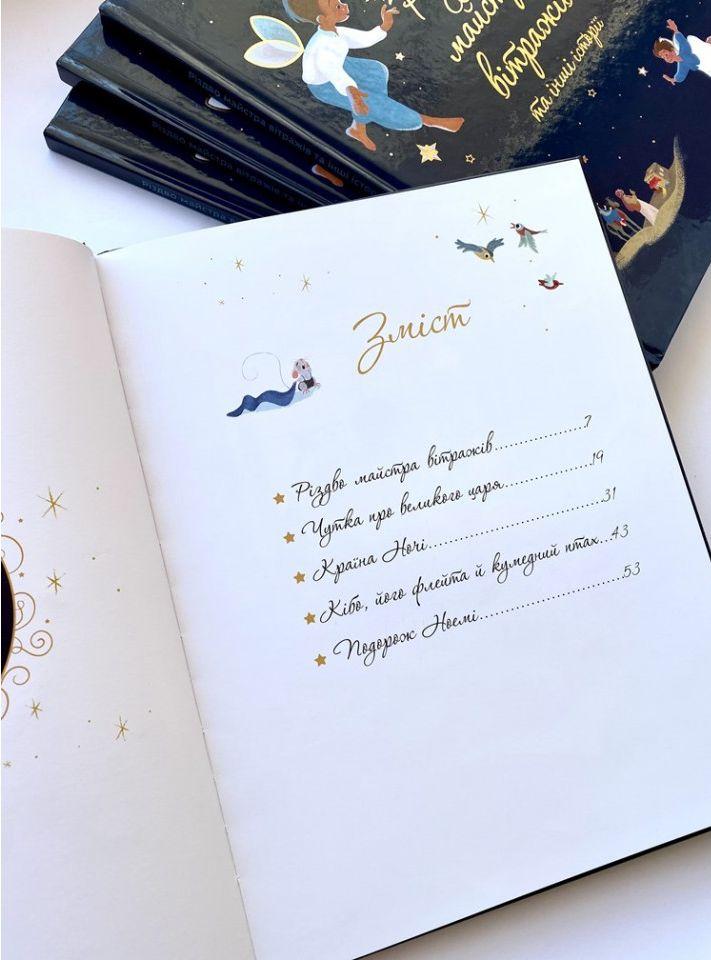 майстра
вітражів
та інші історії
Різдво майстра вітражів та інші істо
Різдво майстра вітражів та інш
Різдво майстра
Зміст
Різдво майстра вітражів..........................7
Чутка про великого царя....................19
Країна Ночі.......................................31
Кібо, його флейта й кумедний птах...43
Подорож Ноемі................................53